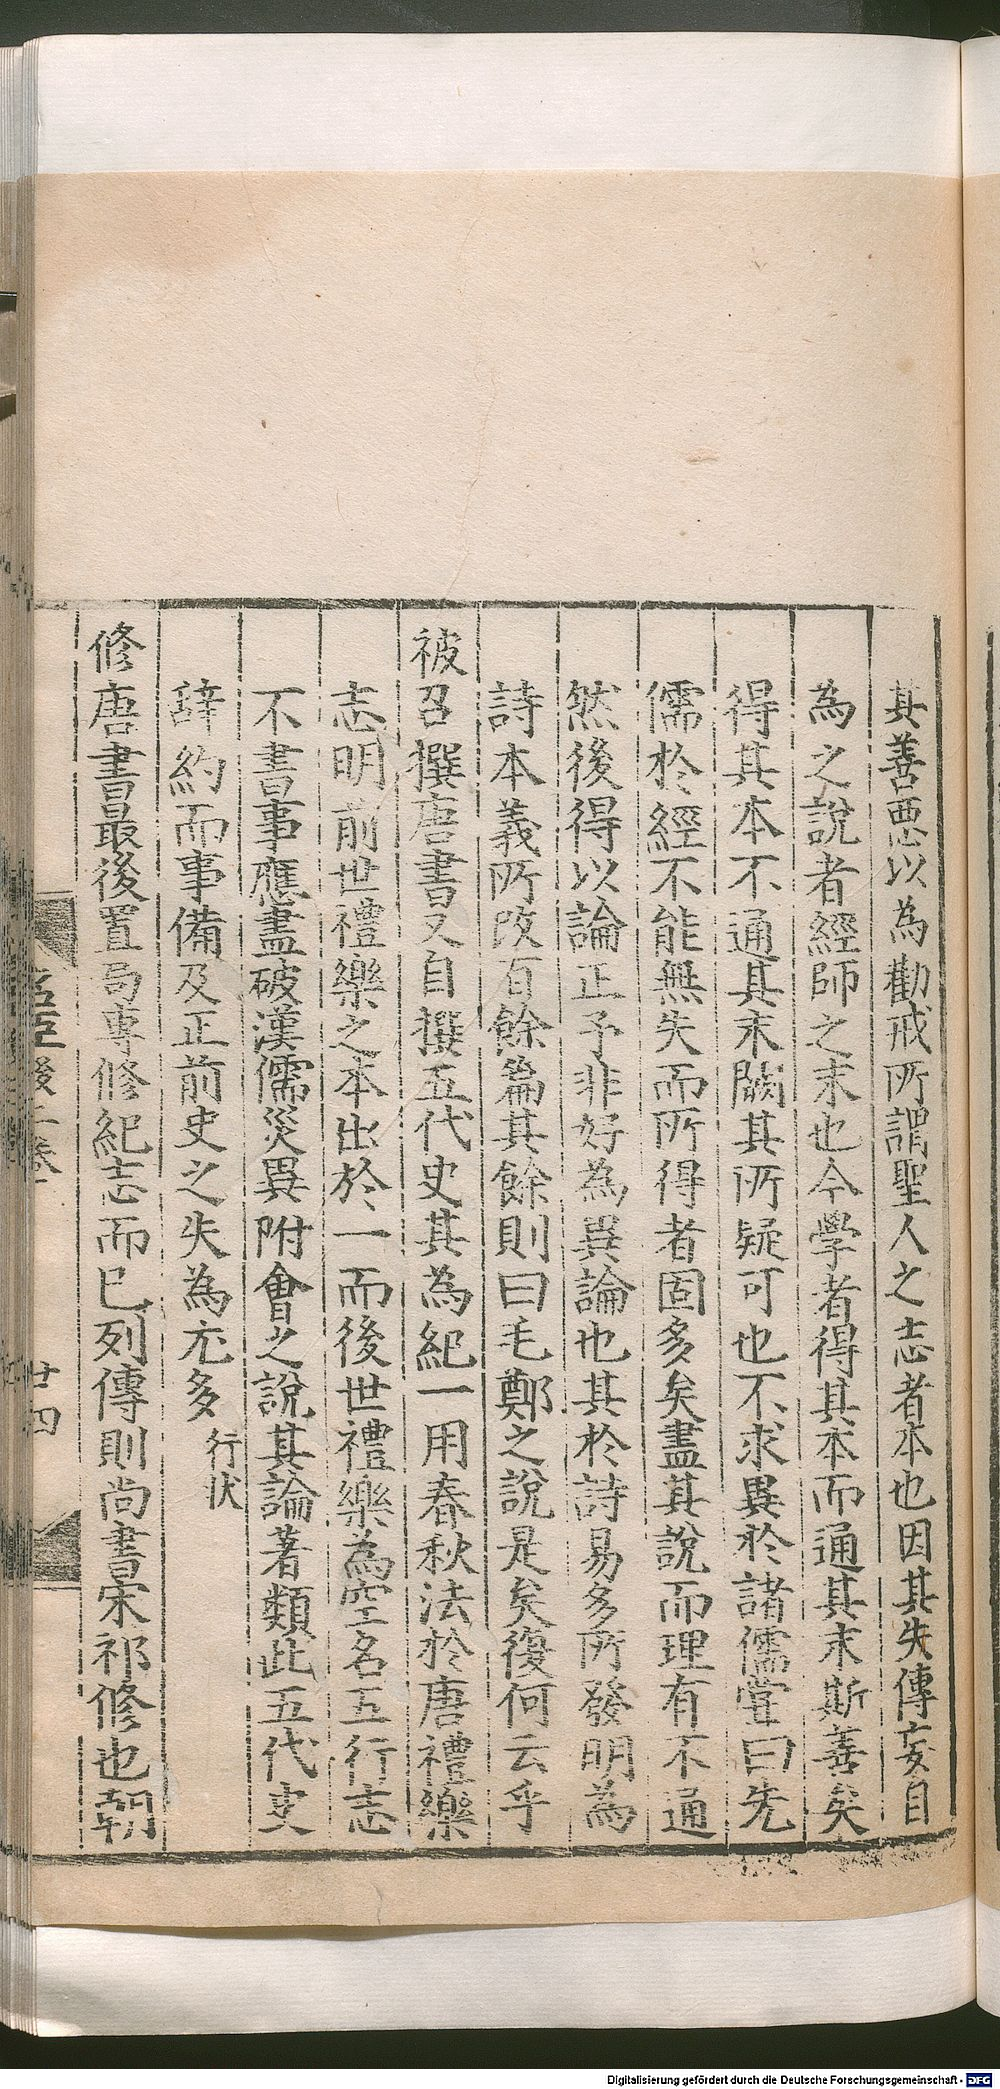 其善惡以為勸戒所謂聖人之志者本也因其失傳妄自
為之說者經師之末也今學者得其本而通其末斯善矣
得其本不通其末闕其所疑可也不求異於諸儒嘗曰先
儒於經不能無失而所得者固多矣盡其說而理有不通
然後得以論正予非好為異論也其於詩易多所發明為
詩本義所改百餘篇其餘則曰毛鄭之說是矣復何云乎
被召撰唐書又自撰五代史其為紀一用春秋法於唐禮樂
志明前世禮樂之本出於一而後世禮樂為空名五行志
不書事應盡破漢儒災異附會之說其論著類此五代史
辭約而事備及正前史之失為尤多行状
修唐書最後置局專修紀志而已列傳則尚書宋祁修也朝
名臣後二卷
廿四
Digitalisierung gefördert durch die Deutsche Forschungsgemeinschaft - DFG